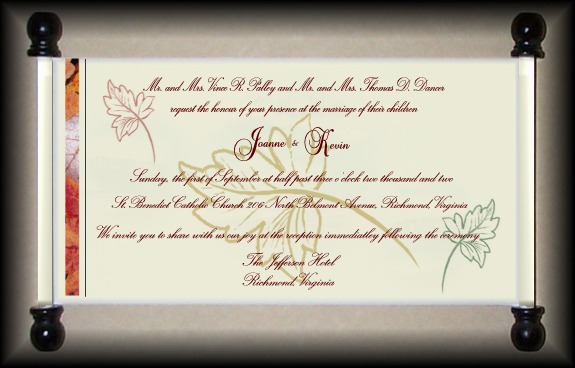 Mr. and Mrs. Vince R. Palley and Mr. and Mrs. Thomas D. Dancer
request the honour of your presence at the marriage of their children
Joanne & Kevin
Sunday, the first of September at half past three o'clock two thousand and two
St. Benedict Catholic Church 206 North Belmont Avenue, Richmond, Virginia
We invite you to share with us our joy at the reception immediatley following the ceremony
The Jefferson Hotel
Richmond, Virginia